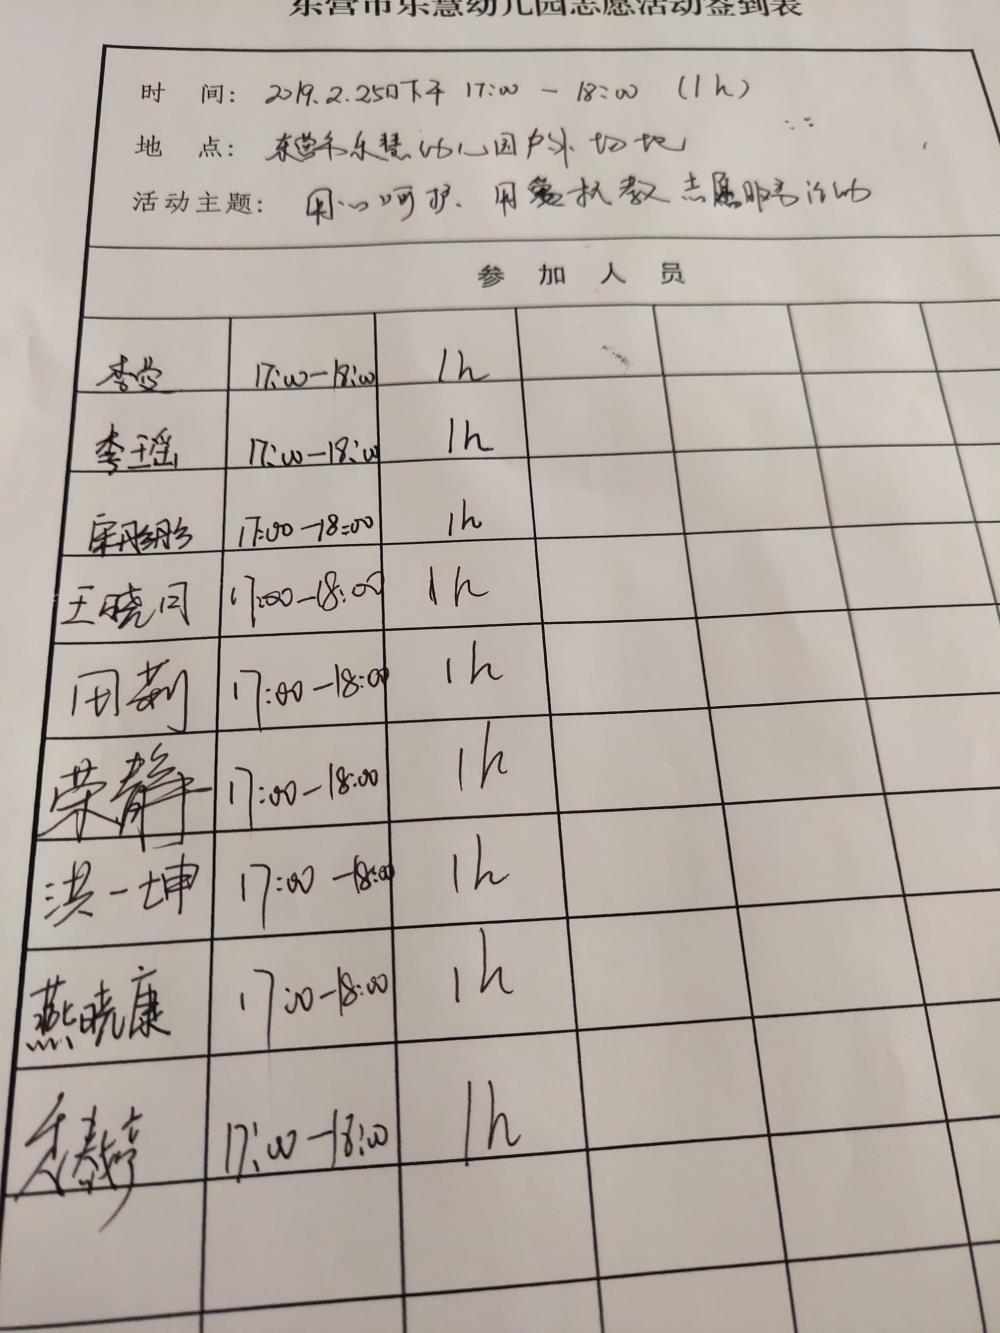 东营市乐慧幼儿园志愿活动签到表
时 间: 2019.2.25日下午 17:00 - 18:00 (1h)
地 点: 东营市乐慧幼儿园户外场地
活动主题: 用心呵护、用爱执教志愿服务活动
参 加 人 员
李莹 17:00-18:00 1h
李瑶 17:00-18:00 1h
宋彤彤 17:00-18:00 1h
王晓月 17:00-18:00 1h
田莉 17:00-18:00 1h
荣静 17:00-18:00 1h
洪一坤 17:00-18:00 1h
燕晓康 17:00-18:00 1h
17:00-18:00 1h